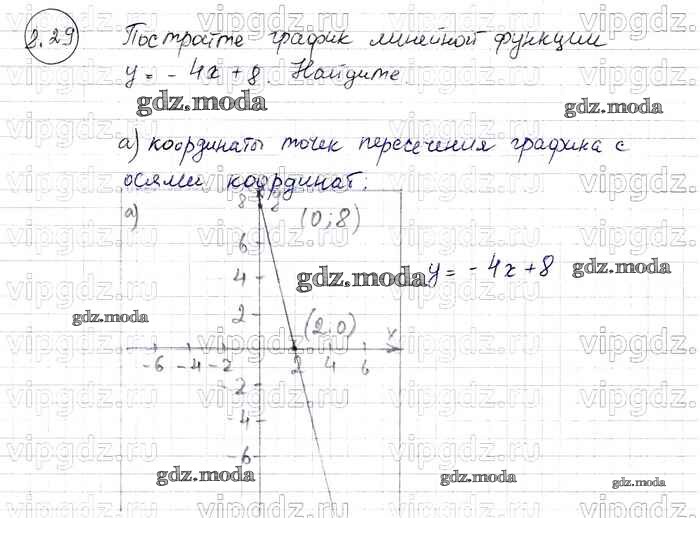 8.29 Постройте график линейной функции
y = - 4x + 8. Найдите
gdz.moda
а) координаты точек пересечения графика с
осями координат:
а) 8 (0;8)
6
4 gdz.moda y = - 4x + 8 gdz.moda
2 (2.0)
gdz.moda
-6 -4 -2 2 4 6 x
-2
-4
-6
gdz.moda gdz.moda gdz.moda
vipgdz.ru